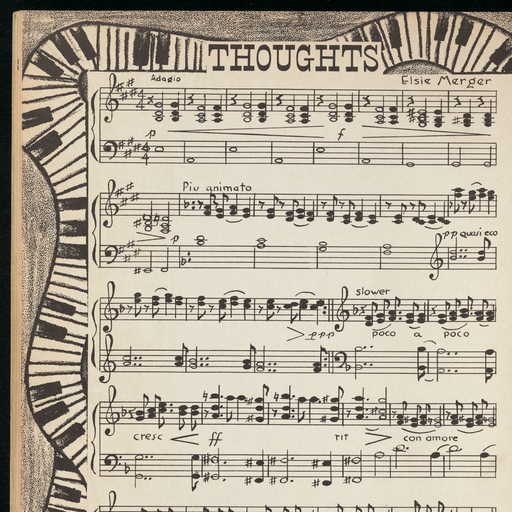 THOUGHTS
Adagio
Elsie Merger
p f
Piu animato
p
pp quasi eco
slower
ppp poco a poco
cresc ff rit con amore